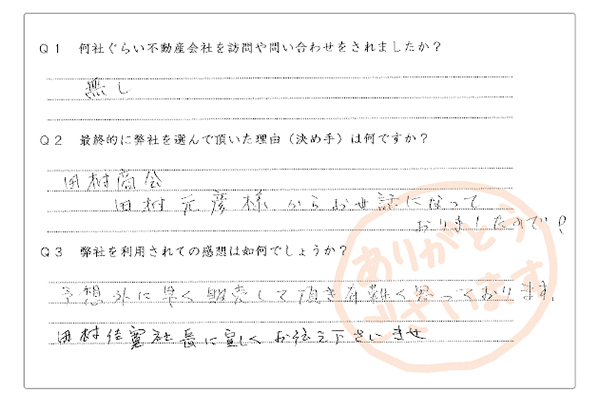 Q1 何社ぐらい不動産会社を訪問や問い合わせをされましたか?
無し
Q2 最終的に弊社を選んで頂いた理由(決め手)は何ですか?
田村商会
田村元彦様からお世話になって
おりましたので
Q3 弊社を利用されての感想は如何でしょうか?
予想外に早く販売して頂き有難く思っております。
田村佳寛社長に宜しくお伝え下さいませ
ありがとう
ございます